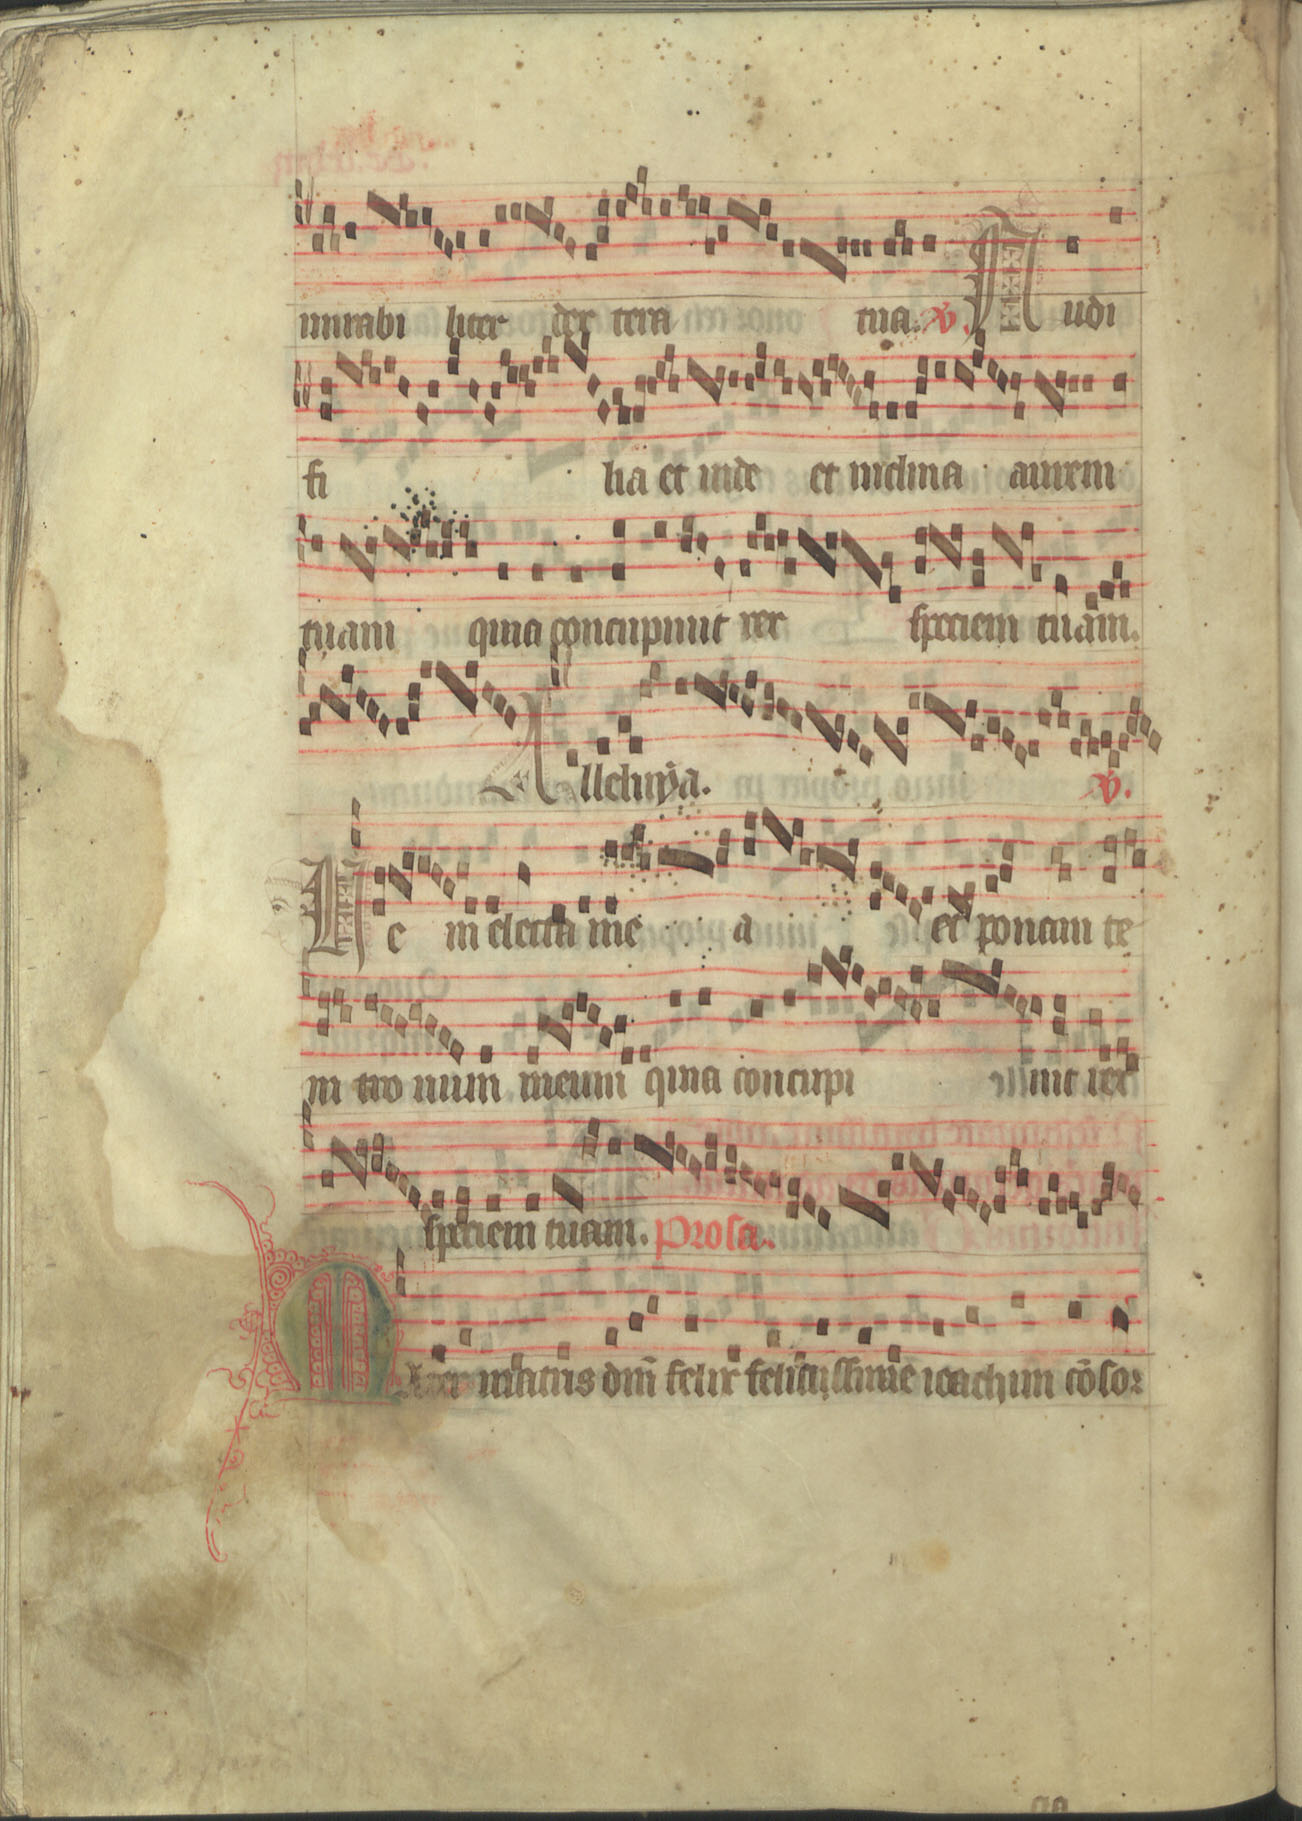 mirabi liter dex tera tua. V. Audi
fi lia et vide et inclina aurem
tuam quia concupiuit rex speciem tuam.
Alleluya. V.
Ueni electa me a et ponam te
in tro num meum quia concupi uit rex
speciem tuam. Prosa.
Mater matris dnī felix felicissime ioachim cōsor